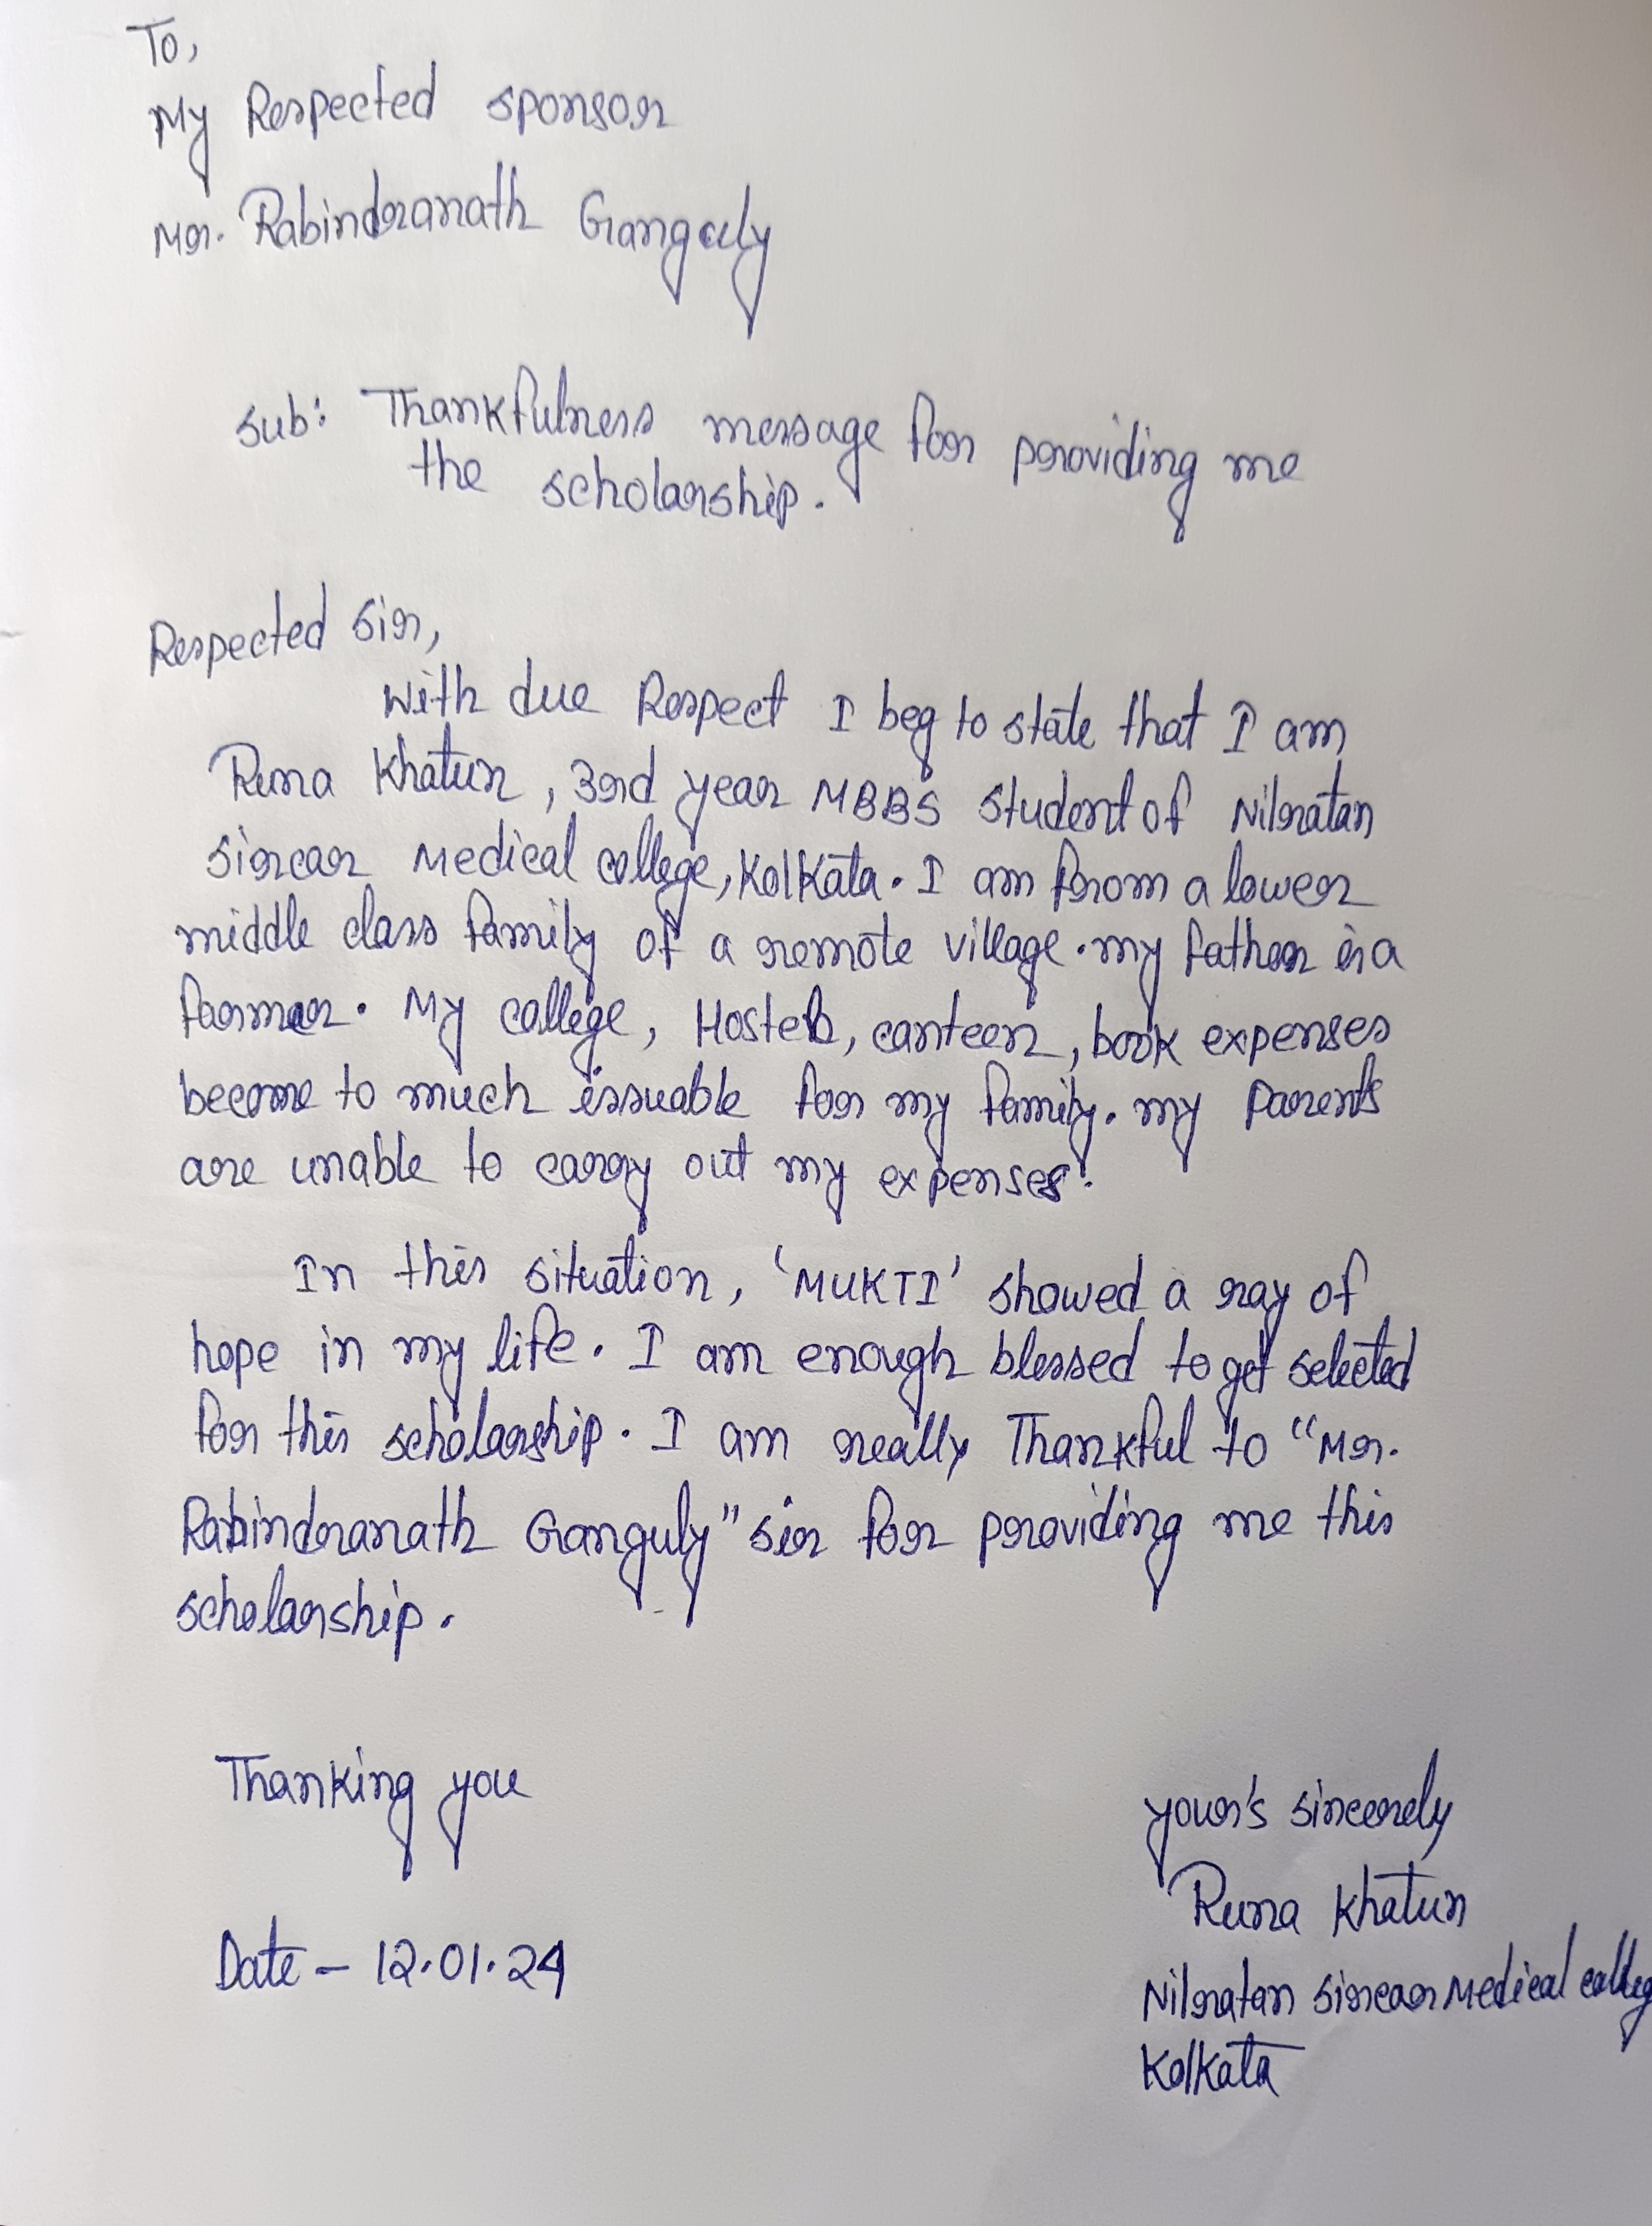 To,
My Respected sponsor
Mr. Rabindranath Ganguly
Sub: Thankfulness message for providing me
the scholarship.
Respected Sir,
With due Respect I beg to state that I am
Runa Khatun, 3rd year MBBS student of Nilratan
Sircar Medical college, Kolkata. I am from a lower
middle class family of a remote village. my father is a
farmer. My college, Hostel, canteen, book expenses
become to much issuable for my family. my parents
are unable to carry out my expenses.
In this situation, 'MUKTI' showed a ray of
hope in my life. I am enough blessed to get selected
for this scholarship. I am really Thankful to "Mr.
Rabindranath Ganguly" sir for providing me this
scholarship.
Thanking you
your's sincerely
Runa Khatun
Date - 12.01.24
Nilratan sircar Medical colleg
Kolkata